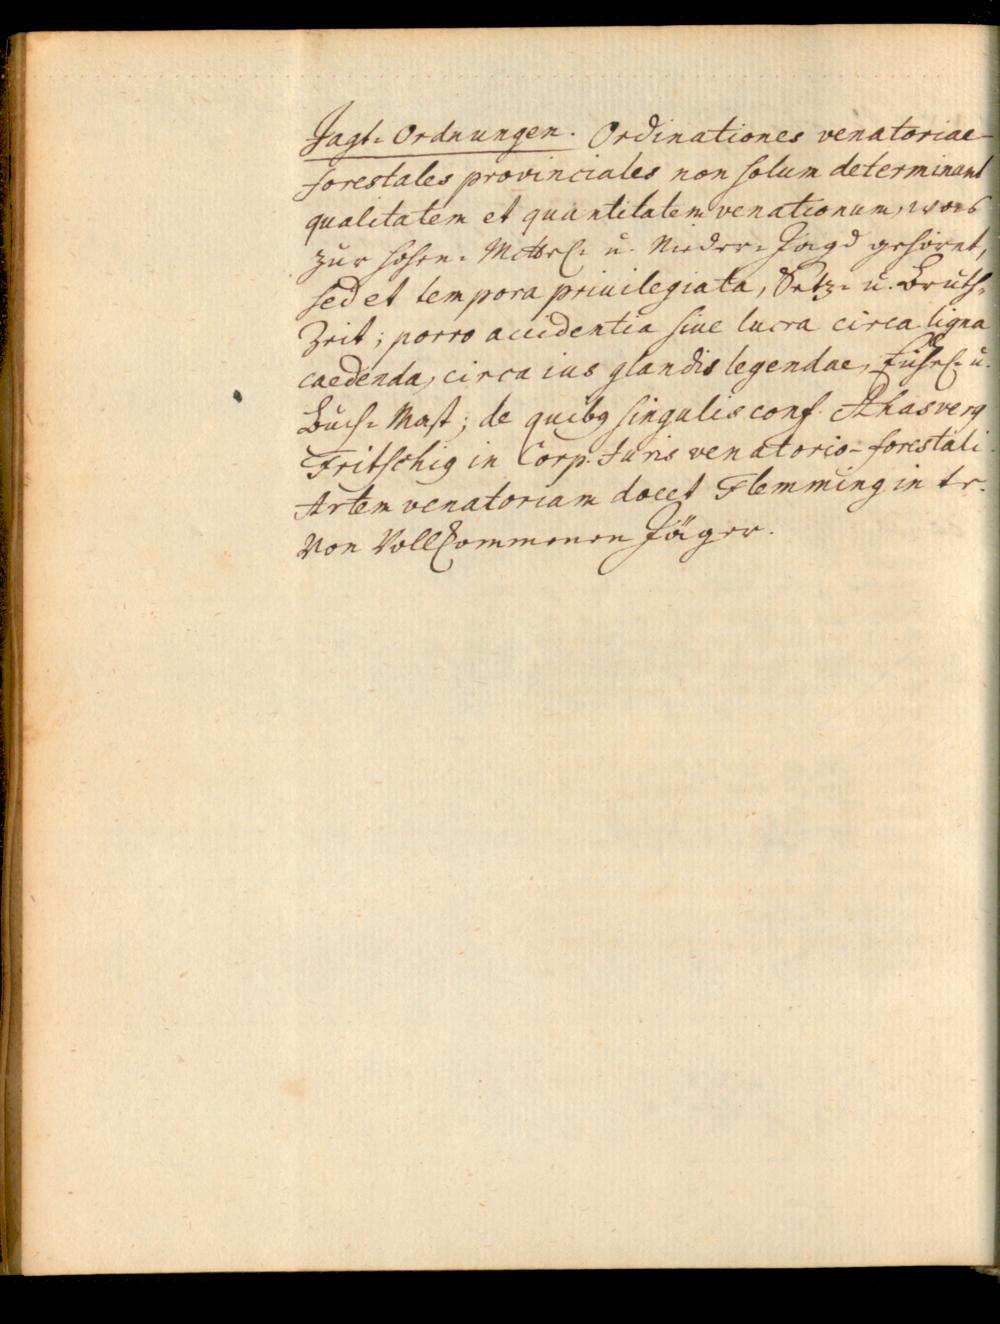 Jagt-Ordnungen. Ordinationes venatoriae
forestales provinciales non solum determinant
qualitatem et quantitatem venationum, was
zur hohen- Mittel- u. Nieder-Jagd gehöret,
sed et tempora priuilegiata, Setz- u. Bruth-
Zeit; porro accidentia siue lucra circa ligna
caedenda, circa ius glandis legendae, u.
Buch-Mast; de quibq singulis conf. Ahasverq
Fritschiq in Corp. Juris venatorio-forestali.
Artem venatoriam docet Flemming in tr.
Von Vollkommenen Jäger.